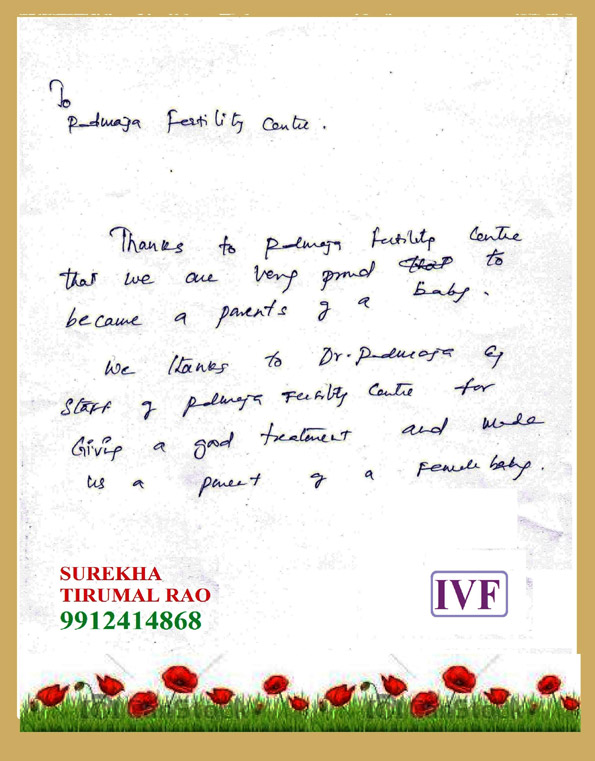 To
Padmaja Fertility Centre.
Thanks to Padmaja Fertility Centre
that we are very proud to
became a parents of a Baby.
We thanks to Dr. Padmaja &
Staff of Padmaja Fertility Centre for
Giving a good treatment and made
us a parent of a Female baby.
SUREKHA
TIRUMAL RAO
9912414868
IVF